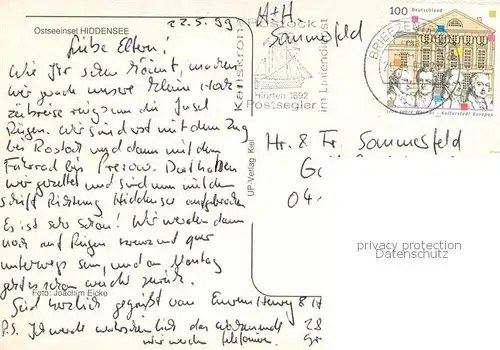 Ostseeinsel HIDDENSEE
22.5.99
H+H. Sommerfeld
Liebe Eltern!
Wie Ihr sehen könnt, machen
wir gerade unsere kleine Rad-
rings um die Insel
Rügen. Wir sind erst mit dem Zug
bis Rostock und dann mit dem
Fahrrad bis Prerow. Dort haben
wir gezeltet und sind nun mit dem
Schiff Richtung Hiddensee aufgebrochen
Es ist sehr schön! Wir werden dann
noch auf Rügen kreuz und quer
unterwegs sein, und am Montag
geht es schon wieder zurück.
Seid herzlich gegrüßt von Henry & H
P.S. Ich werde wahrscheinlich das Wochenende 28
wir werden telefonieren.
Foto: Joachim Eicke
UP-Verlag Kiel
Karlskrona
Rostock
im Liniendienst
1892
Postsegler
BRIEFZEN
100 Deutschland
Kulturstadt Europas
Hr. & Fr. Sommerfeld
04
privacy protection
Datenschutz